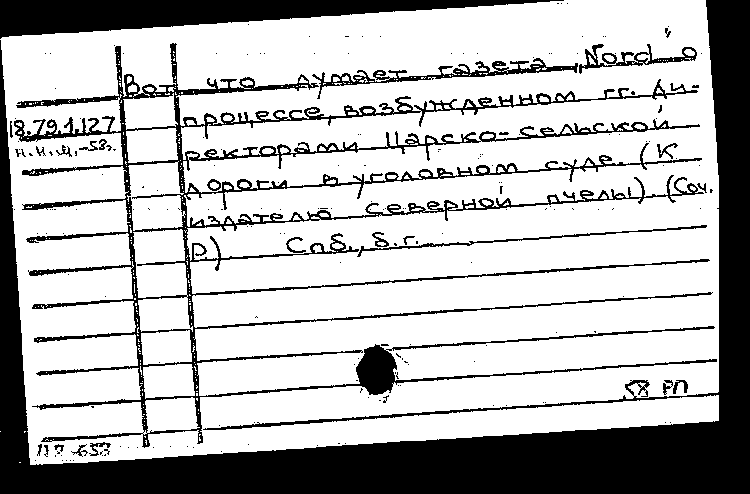 Вот что думает газета „Nord" о
18.79.1.127
процессе, возбужденном гг. ди-
ректорами Царско-сельской
дороги в уголовном суде. (К
издателю Северной пчелы). (Соч.
D) Спб., б.г.
58 РП